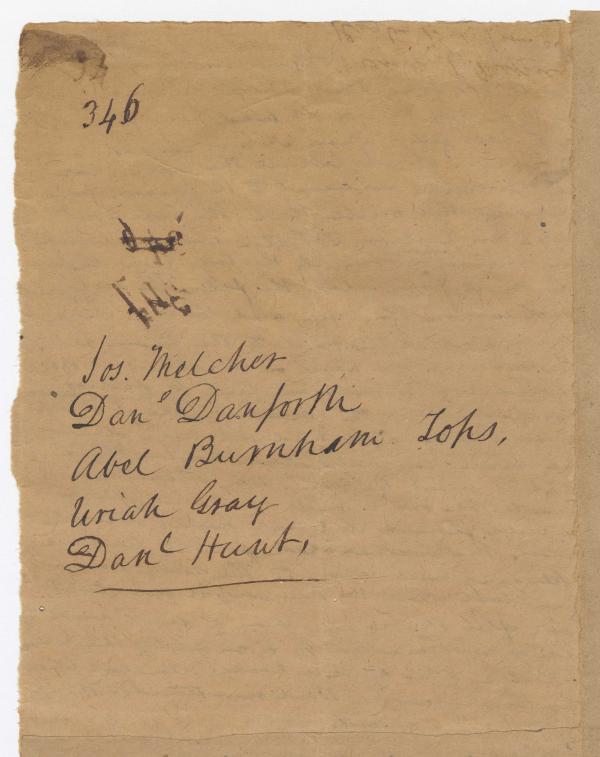 346
Jos. Melcher
Danl Danforth
Abel Burnham Tops,
Uriah Gray
Danl Hunt,